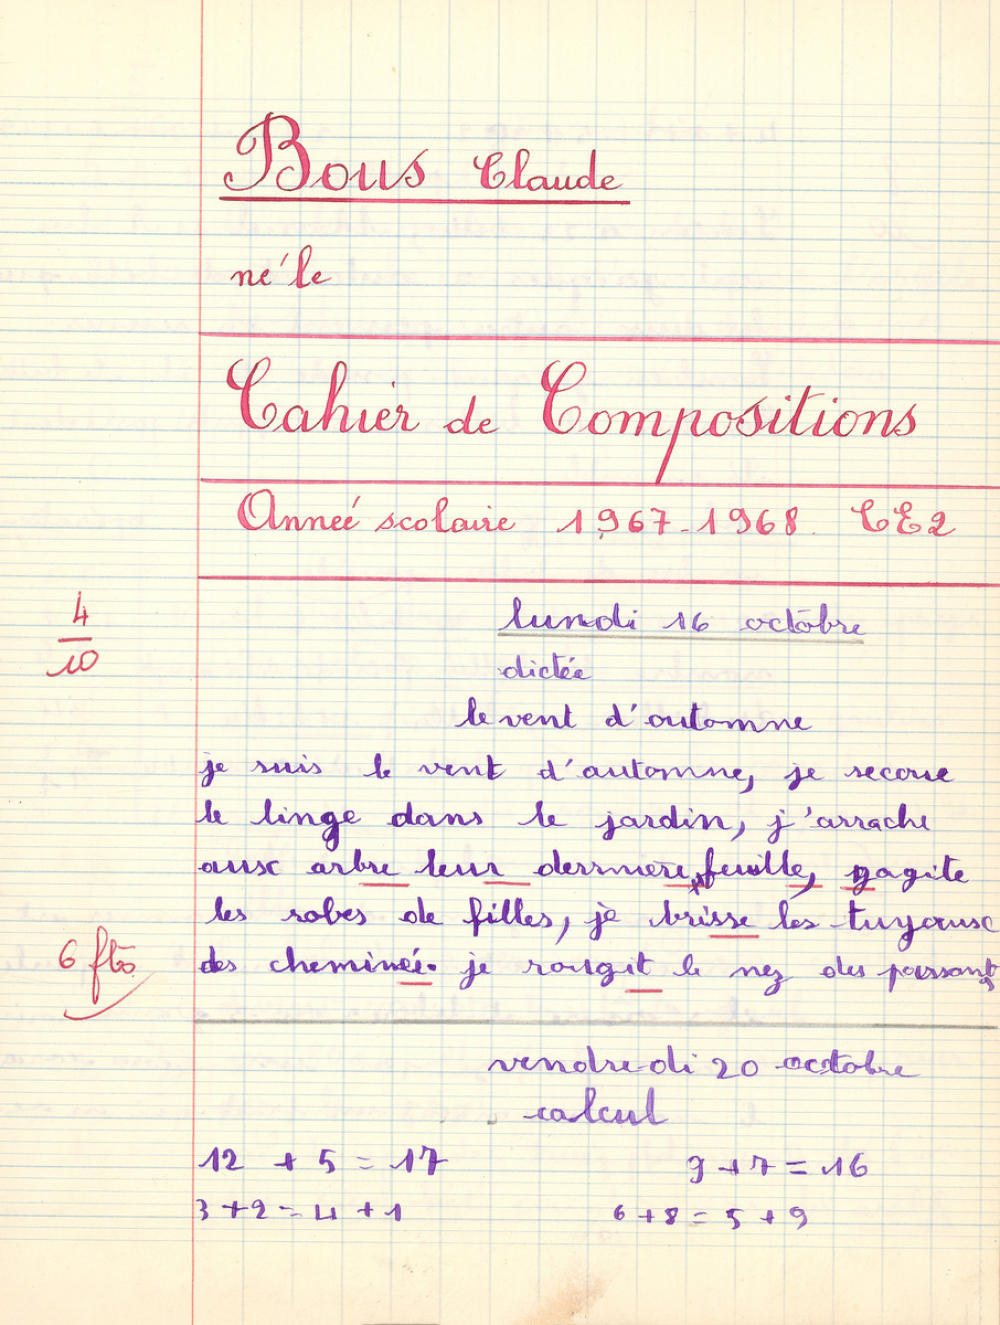 Bous Claude
né le
Cahier de Compositions
Anneé scolaire 1967-1968 CE2
4
10
lundi 16 octobre
dictée
le vent d'automne
je suis le vent d'automne, je secoue
le linge dans le jardin, j'arrache
aux arbre leur dernnière feuille, gagite
les robes de filles, je brisse les tuyaux
6 ftes
des cheminéé. je rougit le nez des passants
vendredi 20 octobre
calcul
12 + 5 = 17 9 + 7 = 16
3 + 2 = 4 + 1 6 + 8 = 5 + 9